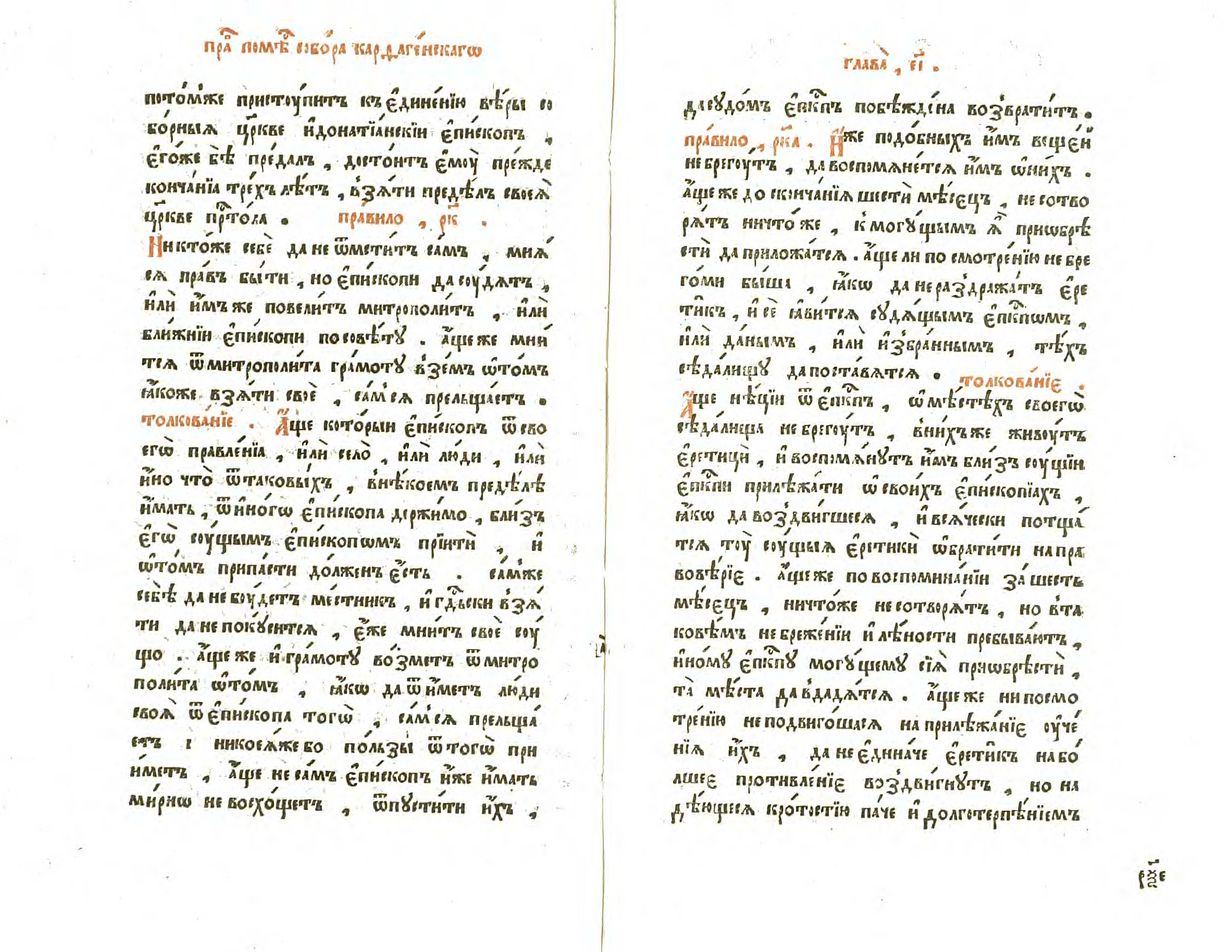 пра̑ помѣ̑ собо́ра карѳаге́нскагѡ
пото́мже пристоу́питъ къ є҆дине́нїю вѣ́ры со
бо́рныѧ цр҃кве и҆донатїа́нскїи є҆пи́скопъ ,
є҆го́же бѣ̀ преда́лъ , досто́итъ є҆моу̀ пре́жде
конча́нїѧ тре́хъ лѣ́тъ , взѧ́ти предѣ́лъ своеѧ̀
цр҃кве пр҇то́ла . пра́вило , рк҃ .
Никто́же себѐ да не ѿмсти́тъ са́мъ , мнѧ́
сѧ пра́въ бы́ти , но є҆пи́скопи да соу́дѧтъ ,
и҆лѝ и҆́мъ же повели́тъ митрополи́тъ , и҆лѝ
бли́жнїи є҆пи́скопи по совѣ́ту . а҆́ще же мни́
тсѧ ѿ митрополи́та гра́моту взе́мъ ѡ҆то́мъ
ꙗ҆́коже взѧ́ти своѐ , са́м сѧ прельща́етъ .
толкова́нїе . А҆́ще кото́рыи є҆пи́скопъ ѿ сво
єгѡ̀ правле́нїѧ , и҆лѝ село̀ , и҆лѝ лю́ди , и҆лѝ
и҆́но что̀ ѿ таковы́хъ , в нѣ́коем предѣ́лѣ
и҆́мать , ѿ и҆но́гѡ є҆пи́скопа держи́мо , бли́зъ
є҆гѡ̀ соу́щымъ є҆пи́скопѡмъ прїитѝ , и҆
ѡ҆то́мъ припа́сти до́лженъ є҆́сть . са́мже
себѣ̀ да не боу́детъ ме́стникъ , и҆ гдⷭ҇ьски взѧ́
ти да не покꙋ́ситсѧ , є҆́же мни́тъ своѐ соу́
що . а҆́ще же и҆ гра́моту во́зметъ ѿ митро
поли́та ѡ҆то́мъ , ꙗ҆́кѡ да ѿи҆́метъ лю́ди
своѧ̀ ѿ є҆пи́скопа тогѡ̀ , са́м сѧ прельща́
етъ : никоеѧ́же бо по́льзы ѿ тогѡ̀ при
и́метъ , а҆́ще не са́мъ є҆пи́скопъ и҆́же и҆́мать
ми́рнѡ не восхо́щетъ , ѿпусти́ти и҆̀хъ ,
глава̀ , є҃і .
да судо́мъ є҆пⷭ҇кпъ побѣжде́на возврати́тъ .
пра́вило , рк҃а . И҆̀же подо́бныхъ и҆́мъ веще́й
не брегоу́тъ , да воспомѧне́тсѧ и҆́мъ ѡ҆ни́хъ .
а҆́ще же до сконча́нїѧ шестѝ мѣ́сѧцъ , не сотво
рѧ́тъ ничто́ же , к могу́щымъ ѧ҆̀ приѡбрѣ
стѝ да приложа́тсѧ . а҆́ще ли по смотре́нїю не бре
го́ми бы́ша , ꙗ҆́кѡ да не раздража́тъ є҆ре
ти́къ , и҆ сѐ ꙗ҆ви́тсѧ судѧ́щымъ є҆пⷭ҇кпѡмъ ,
и҆лѝ да́нымъ , и҆лѝ и҆збра́ннымъ , тѣ́хъ
сѣда́лищу да поста́вѧтсѧ . толкова́нїе .
А҆́ще нѣ́цїи ѿ є҆пⷭ҇кпъ , ѡ҆ мѣ́стѣхъ своегѡ̀
сѣда́лища не брегоу́тъ , в ни́хъ же живоу́тъ
є҆ретицѝ , и҆ воспомѧну́тъ и҆́мъ бли́зъ соу́щїи
є҆пⷭ҇кпи прилѣжа́ти ѡ҆ свои́хъ є҆писко́пїахъ ,
ꙗ҆́кѡ да воздви́гшесѧ , и҆ всѧ́чески потща́
тсѧ тоу̀ соу́щыѧ є҆ретикѝ ѡ҆брати́ти на пра
вовѣ́рїе . а҆́ще же по воспомина́нїи за́ шесть
мѣ́сѧцъ , ничто́же не сотворѧ́тъ , но в та
ковѣ́мъ небреже́нїи и҆ лѣ́ности пребыва́ютъ ,
и҆но́му є҆пⷭ҇кпу могу́щему сїѧ̀ приѡбрѣстѝ ,
та̀ мѣ́ста да вдадѧ́тсѧ . а҆́ще же ни по смо
тре́нїю не подвиго́шасѧ на прилѣжа́нїе оуче́
нїѧ и҆́хъ , да не є҆дина́че є҆рети́къ на бо́
лшее противле́нїе воздви́гнутъ , но на
дѣ́ющесѧ кро́тостїю па́че и҆ долготерпѣ́нїемъ